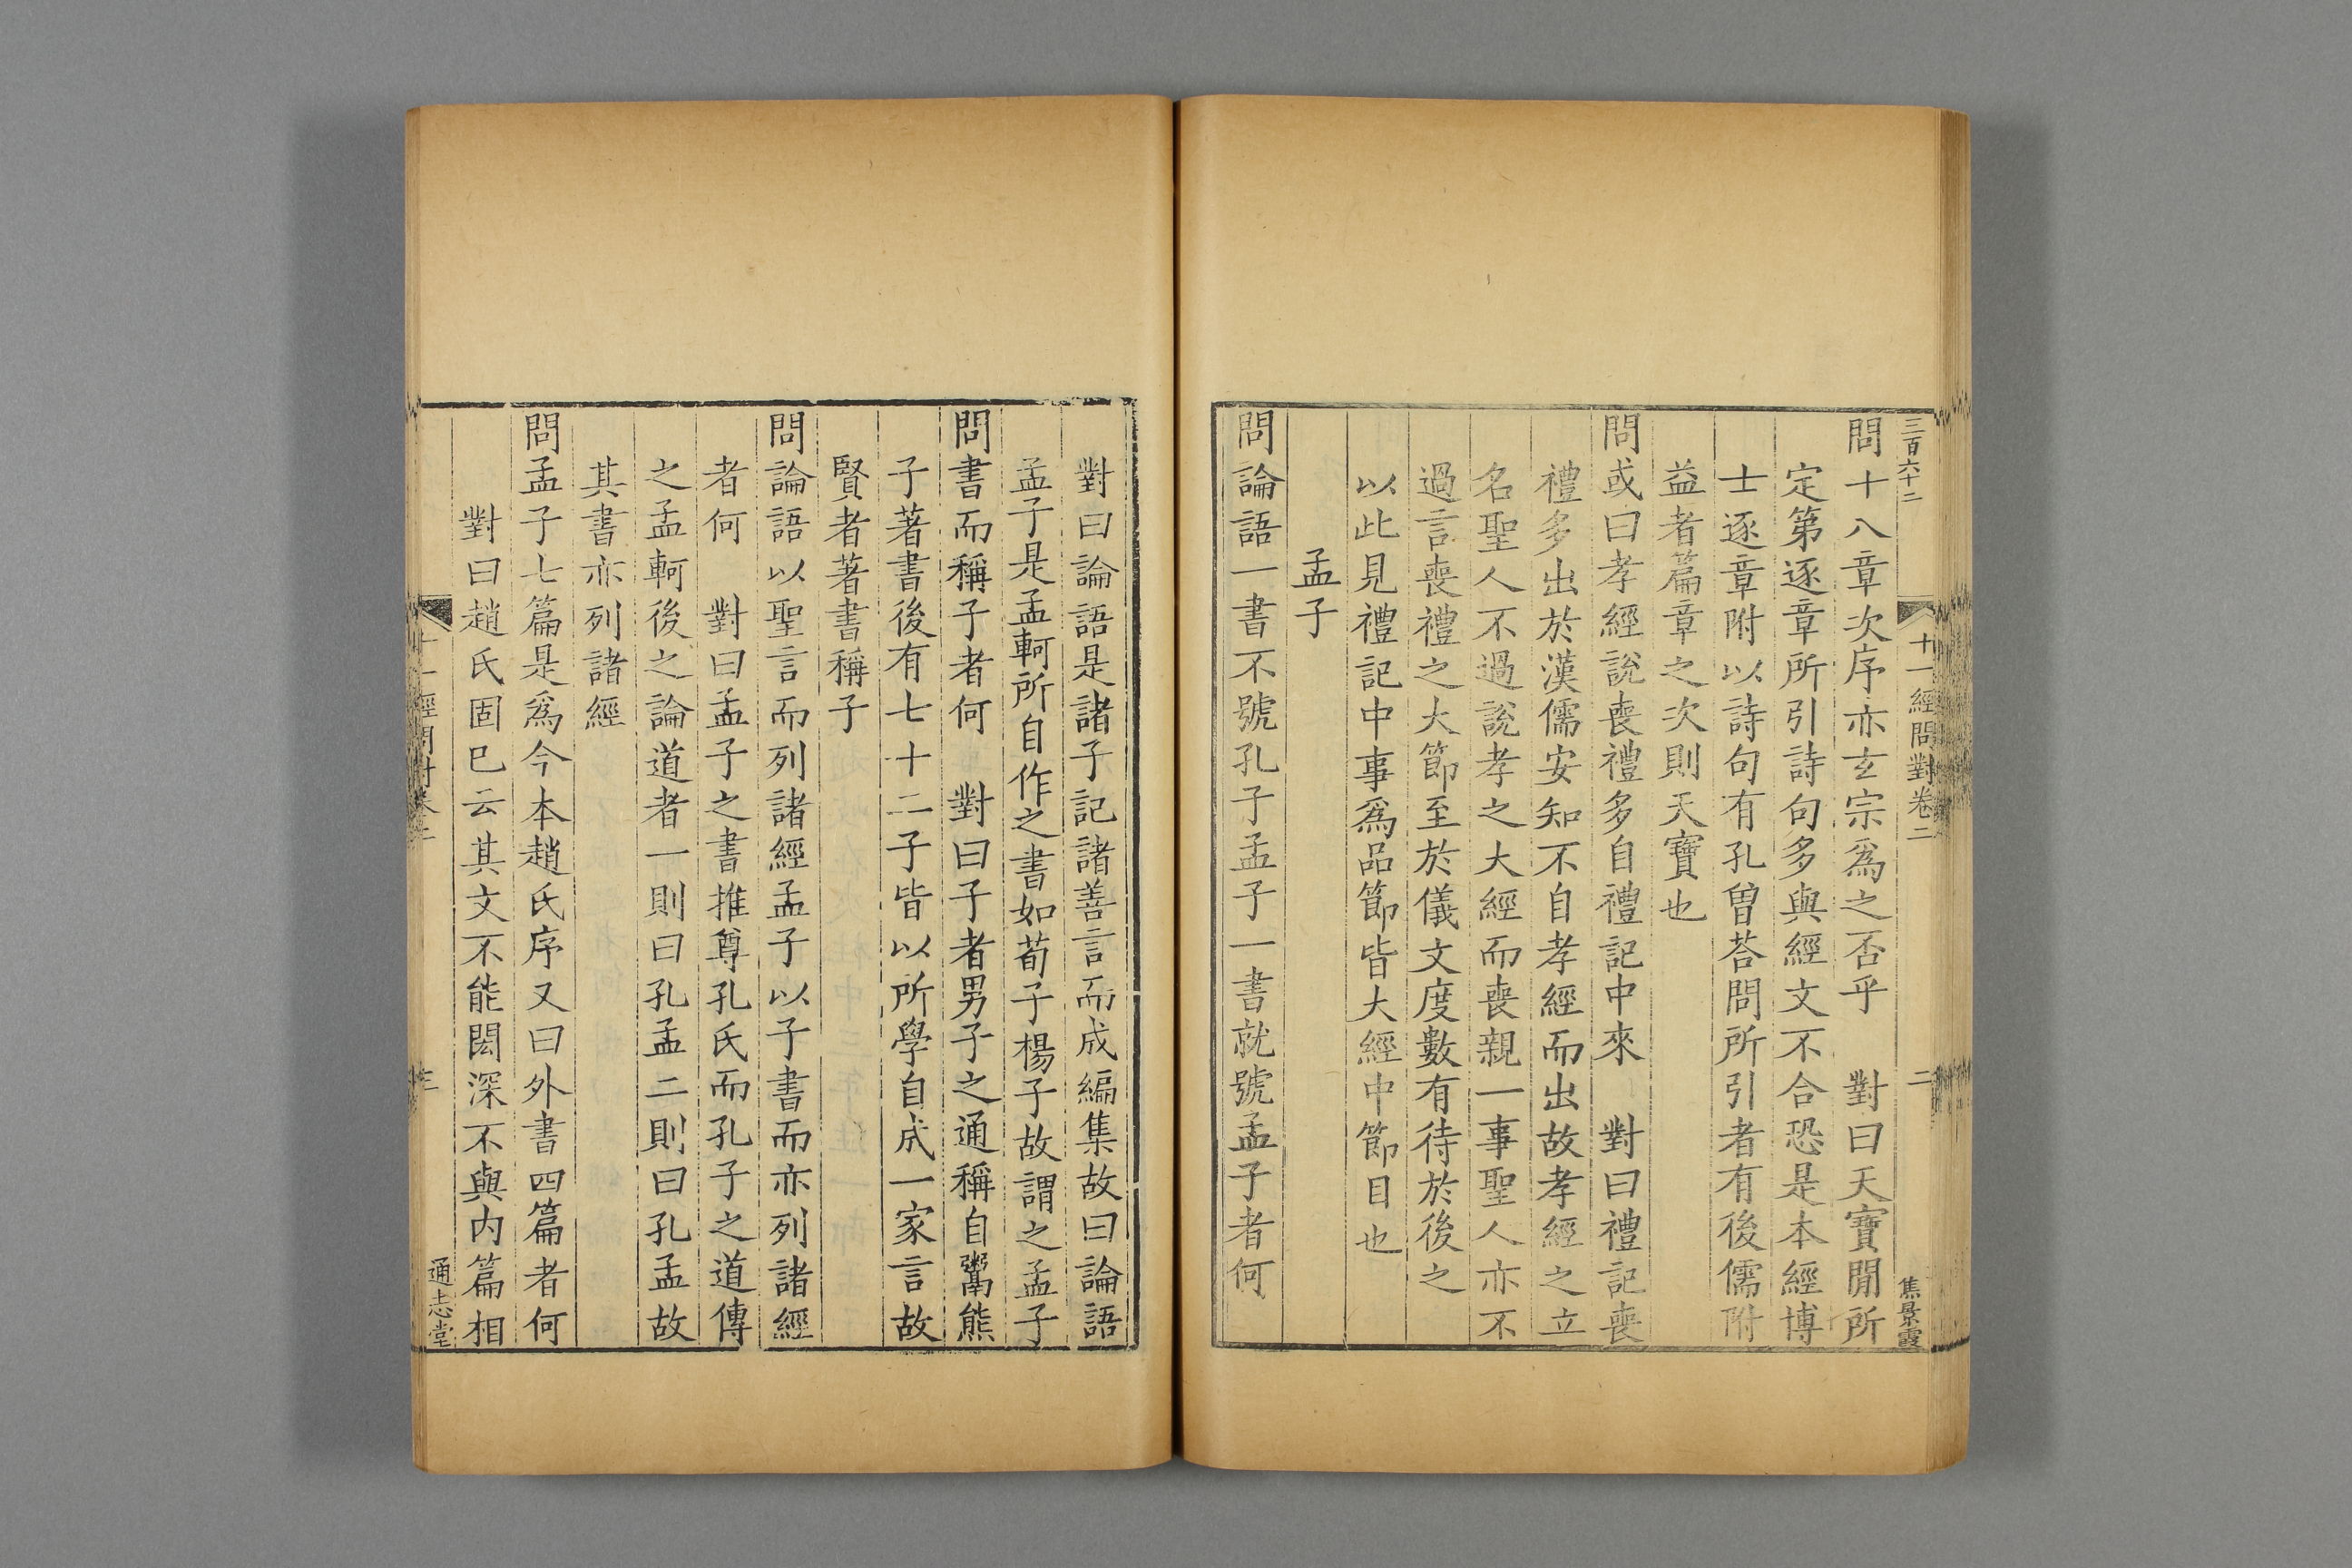 三百六十二
十一經問對卷二
二
焦景霞
問十八章次序亦玄宗爲之否乎　對曰天寶閒所
定第逐章所引詩句多與經文不合恐是本經博
士逐章附以詩句有孔曾荅問所引者有後儒附
益者篇章之次則天寶也
問或曰孝經說喪禮多自禮記中來　對曰禮記喪
禮多出於漢儒安知不自孝經而出故孝經之立
名聖人不過說孝之大經而喪親一事聖人亦不
過言喪禮之大節至於儀文度數有待於後之
以此見禮記中事爲品節皆大經中節目也
孟子
問論語一書不號孔子孟子一書就號孟子者何
對曰論語是諸子記諸善言而成編集故曰論語
孟子是孟軻所自作之書如荀子楊子故謂之孟子
問書而稱子者何　對曰子者男子之通稱自鬻熊
子著書後有七十二子皆以所學自成一家言故
賢者著書稱子
問論語以聖言而列諸經孟子以子書而亦列諸經
者何　對曰孟子之書推尊孔氏而孔子之道傳
之孟軻後之論道者一則曰孔孟二則曰孔孟故
其書亦列諸經
問孟子七篇是爲今本趙氏序又曰外書四篇者何
對曰趙氏固巳云其文不能閎深不與内篇相
十一經問對卷二
三
通志堂